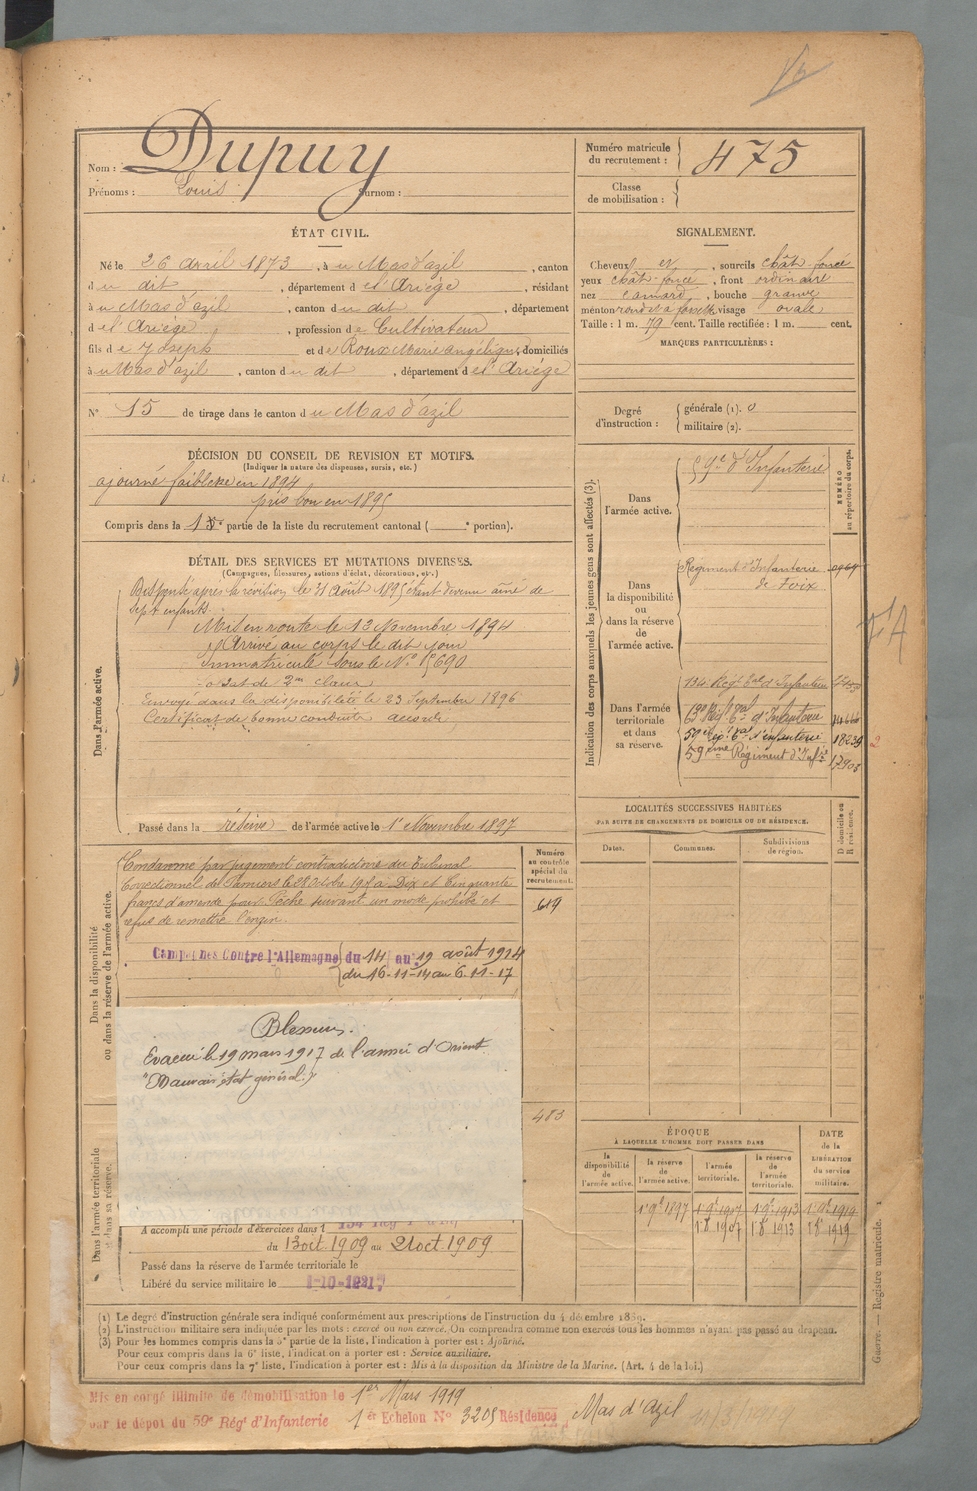 Nom : Dupuy
Prénoms : Louis Surnom :
Numéro matricule du recrutement : 475
Classe de mobilisation :
ÉTAT CIVIL.
Né le 26 avril 1873, à u Mas d'azil, canton
d u dit, département d e l'Ariège, résidant
à u Mas d'azil, canton d u dit, département
d e l'Ariège, profession d e Cultivateur
fils d e Joseph et d e Roux Marie angélique, domiciliés
à u Mas d'azil, canton d u dit, département d e l'Ariège
N° 15 de tirage dans le canton d u Mas d'azil
SIGNALEMENT.
Cheveux et, sourcils chât-foncé
yeux chât-foncé, front ordinaire
nez camard, bouche grande
menton rond et à fossette, visage ovale
Taille : 1 m. 79 cent. Taille rectifiée : 1 m. cent.
MARQUES PARTICULIÈRES :
Degré d'instruction : générale (1). 0
militaire (2).
DÉCISION DU CONSEIL DE REVISION ET MOTIFS.
(Indiquer la nature des dispenses, sursis, etc.)
ajourné faiblesse en 1894
pris bon en 1895
Compris dans la 1e partie de la liste du recrutement cantonal ( e portion).
DÉTAIL DES SERVICES ET MUTATIONS DIVERSES.
(Campagnes, blessures, actions d'éclat, décorations, etc.)
Dans l'armée active.
Dispensé après la révision le 31 Août 1895 étant devenu aîné de
sept enfants.
Mis en route le 13 Novembre 1894
Arrivé au corps le dit jour
Immatriculé sous le N°
soldat de 2me classe
Envoyé dans la disponibilité le 23 Septembre 1896
Certificat de bonne conduite accordé
Passé dans la réserve de l'armée active le 1er Novembre 1897
Indication des corps auxquels les jeunes gens sont affectés (3).
NUMÉRO au répertoire du corps.
Dans l'armée active. 59e d'Infanterie
Dans la disponibilité ou dans la réserve de l'armée active. Régiment d'Infanterie
de Foix
Dans l'armée territoriale et dans sa réserve. 134 Régt Tal d'Infanterie
Régt Tal d'Infanterie
59e Régt Tal d'infanterie 18239
59ème Régiment d'Infie 17908
2
LOCALITÉS SUCCESSIVES HABITÉES
PAR SUITE DE CHANGEMENTS DE DOMICILE OU DE RÉSIDENCE.
Dates. Communes. Subdivisions de région. D domicile ou R résidence.
Dans la disponibilité
ou dans la réserve de l'armée active.
Numéro au contrôle spécial du recrutement.
619
Condamné par jugement contradictoire du Tribunal
Correctionnel de Pamiers le 28 Octobre à Dix et Cinquante
francs d'amende pour Pêche suivant un mode prohibé et
refus de remettre l'engin.
Campagnes Contre l'Allemagne du 14 au 19 août 1914
du 16-11-14 au 6-11-17
Blessures.
Evacué le 19 mars 1917 de l'armée d'Orient
"Mauvais état général."
483
Dans l'armée territoriale
et dans sa réserve.
A accompli une période d'exercices dans l
du 13 oct 1909 au 21 oct 1909
Passé dans la réserve de l'armée territoriale le
Libéré du service militaire le
ÉPOQUE
À LAQUELLE L'HOMME DOIT PASSER DANS
DATE de la LIBÉRATION du service militaire.
la disponibilité de l'armée active. la réserve de l'armée active. l'armée territoriale. la réserve de l'armée territoriale.
1 9bre 1897 1 9bre 1907 1 9bre 1913 1 9bre 1919
1 8 1907 1 8 1913 1 8 1919
(1) Le degré d'instruction générale sera indiqué conformément aux prescriptions de l'instruction du 4 décembre 1889.
(2) L'instruction militaire sera indiquée par les mots : exercé ou non exercé. On comprendra comme non exercés tous les hommes n'ayant pas passé au drapeau.
(3) Pour les hommes compris dans la 5e partie de la liste, l'indication à porter est : Ajourné.
Pour ceux compris dans la 6e liste, l'indication à porter est : Service auxiliaire.
Pour ceux compris dans la 7e liste, l'indication à porter est : Mis à la disposition du Ministre de la Marine. (Art. 4 de la loi.)
Guerre. — Registre matricule. 1
Mis en congé illimité de démobilisation le 1er Mars 1919
par le dépôt du 59e Régt d'Infanterie 1er Echelon N° 3205 Résidence Mas d'Azil